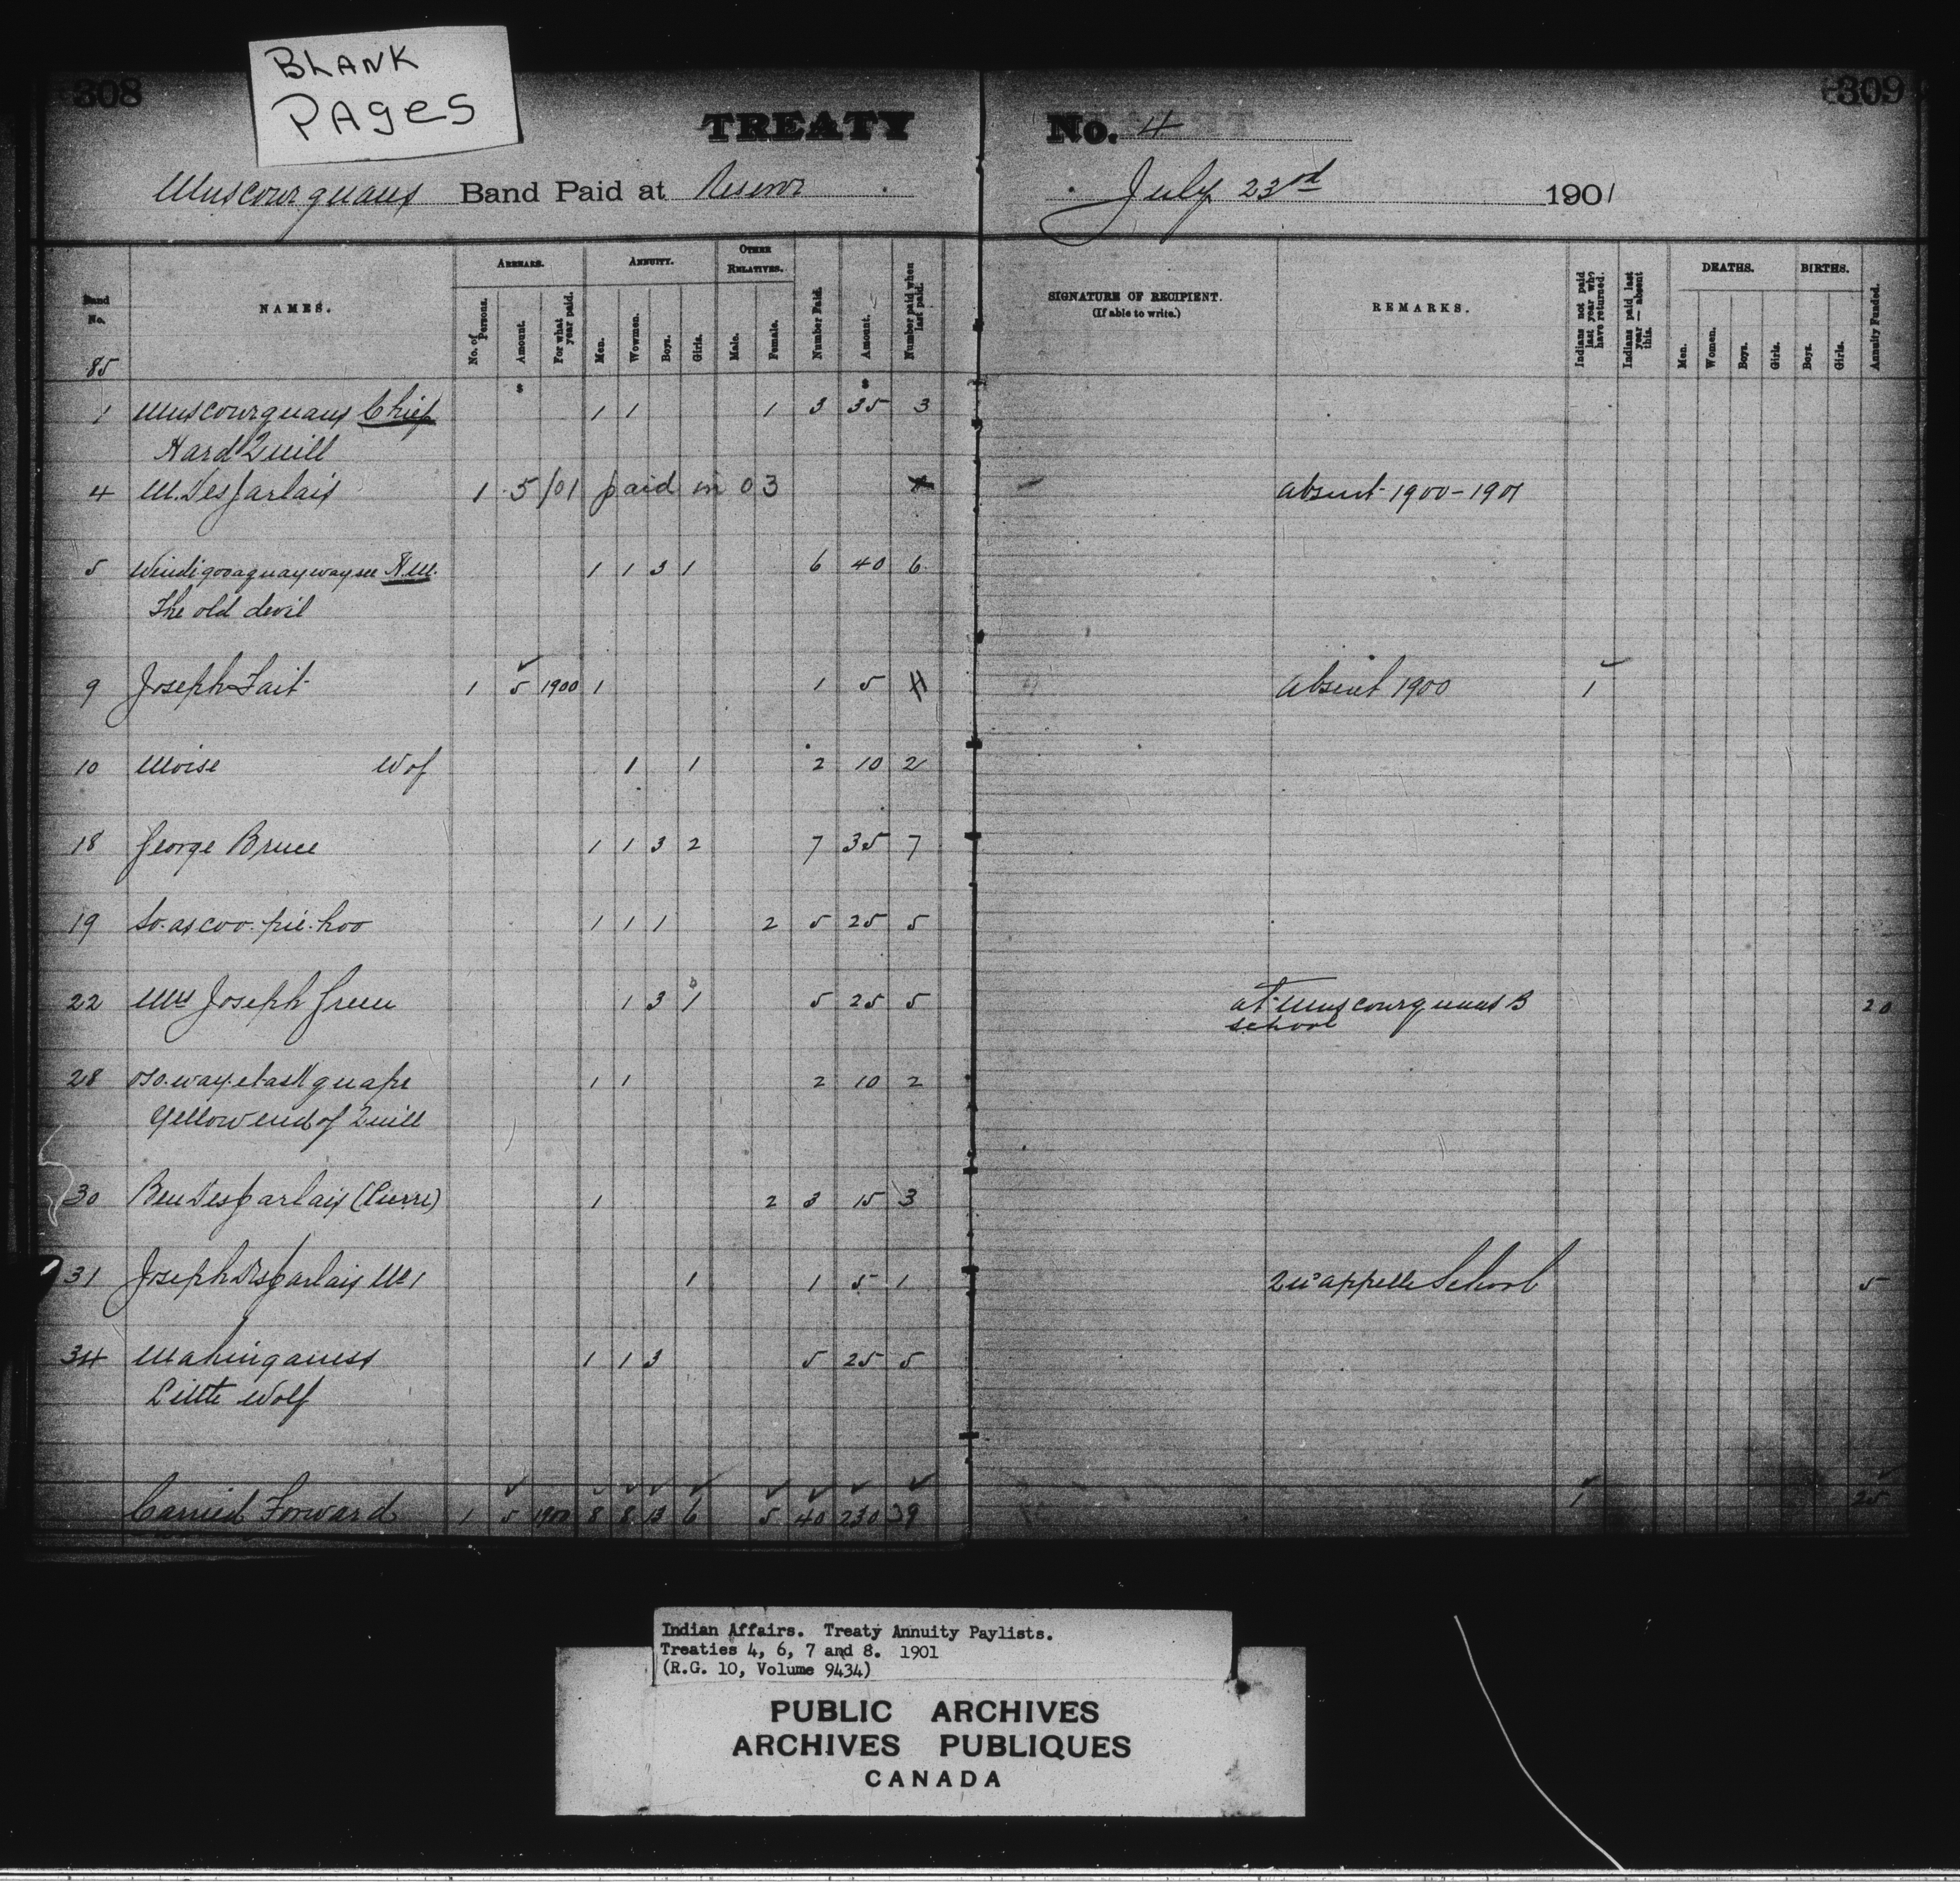 BLANK
PAGES
308
309
TREATY No. 4
Muscowequans Band Paid at Reserve July 23rd 1901
Band No. NAMES. ARREARS. ANNUITY. OTHER RELATIVES. Number Paid. Amount. Number paid when last paid.
No. of Persons. Amount. For what year paid. Men. Wowmen. Boys. Girls. Male. Female.
SIGNATURE OF RECIPIENT. (If able to write.) REMARKS. Indians not paid last year who have returned. Indians paid last year — absent this. DEATHS. BIRTHS. Annuity Funded.
Men. Women. Boys. Girls. Boys. Girls.
85
$ $
1 Muscowequans Chief 1 1 1 3 35 3
Hard Quill
4 M. Desjarlais 1 5/01 paid in 03 absent 1900-1901
5 Windigooaquaywaysee H.M. 1 1 3 1 6 40 6
The old devil
9 Joseph Tait 1 5 1900 1 1 5 absent 1900 1
10 Moise Wof 1 1 2 10 2
18 George Bruce 1 1 3 2 7 35 7
19 So.as.coo.pie.hoo 1 1 1 2 5 25 5
22 Mrs Joseph Green 1 3 1 5 25 5 at Muscowequans B 20
school
28 1 1 2 10 2
Yellow end of Quill
30 Ben Desjarlais (Pierre) 1 2 3 15 3
31 Joseph Desjarlais No 1 1 1 5 1 Qu'appelle School 5
34 Mahinganess 1 1 3 5 25 5
Little Wolf
Carried Forward 1 5 1900 8 8 13 6 5 40 230 39 1 25
Indian Affairs. Treaty Annuity Paylists.
Treaties 4, 6, 7 and 8. 1901
(R.G. 10, Volume 9434)
PUBLIC ARCHIVES
ARCHIVES PUBLIQUES
CANADA